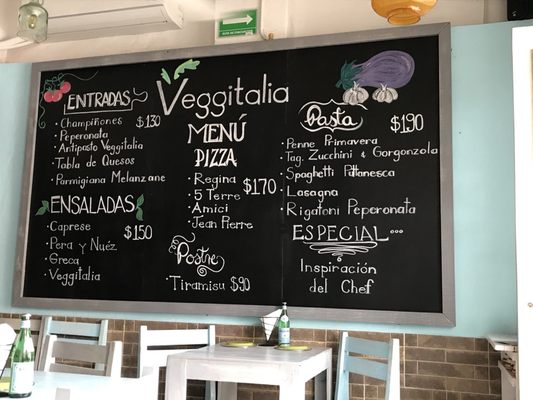 Veggitalia
MENÚ
ENTRADAS
• Champiñones $130
• Peperonata
• Antipasto Veggitalia
• Tabla de Quesos
• Parmigiana Melanzane
ENSALADAS
• Caprese $150
• Pera y Nuéz
• Greca
• Veggitalia
PIZZA
• Regina $170
• 5 Terre
• Amici
• Jean Pierre
Postre
• Tiramisu $90
Pasta $190
• Penne Primavera
• Tag. Zucchini & Gorgonzola
• Spaghetti Puttanesca
• Lasagna
• Rigatoni Peperonata
ESPECIAL...
• Inspiración
del Chef